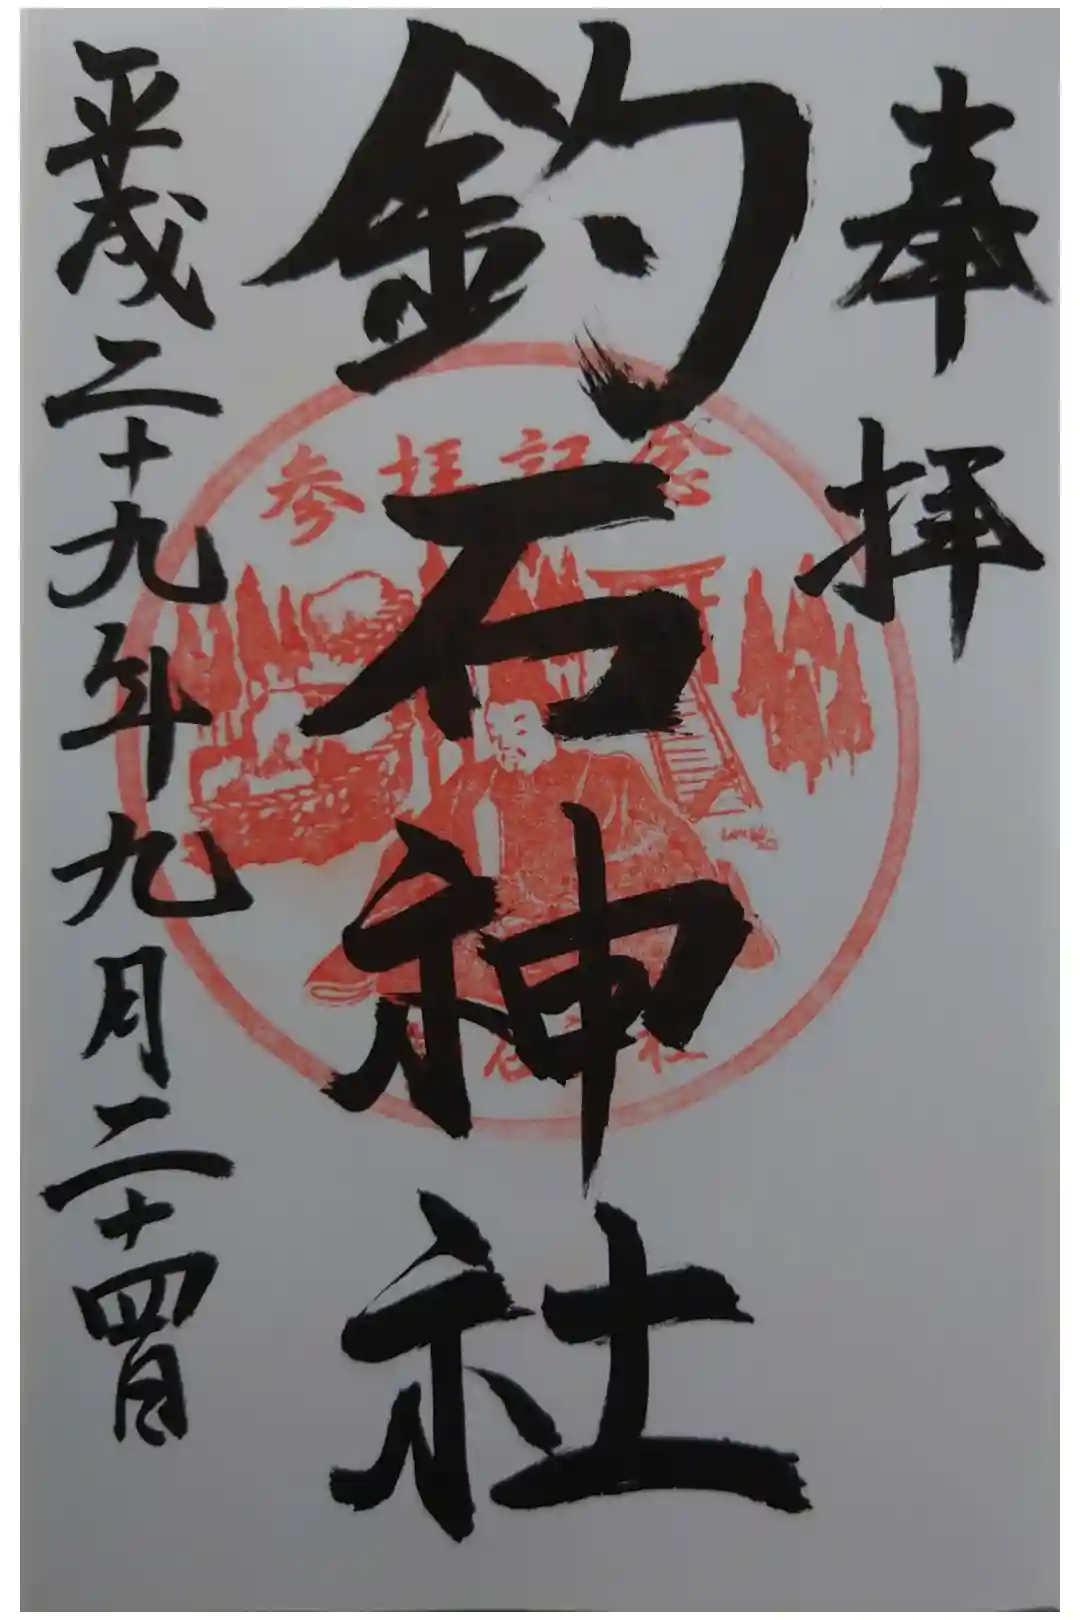 奉拝
釣石神社
平成二十九年九月二十四日
参拝記念
石神社